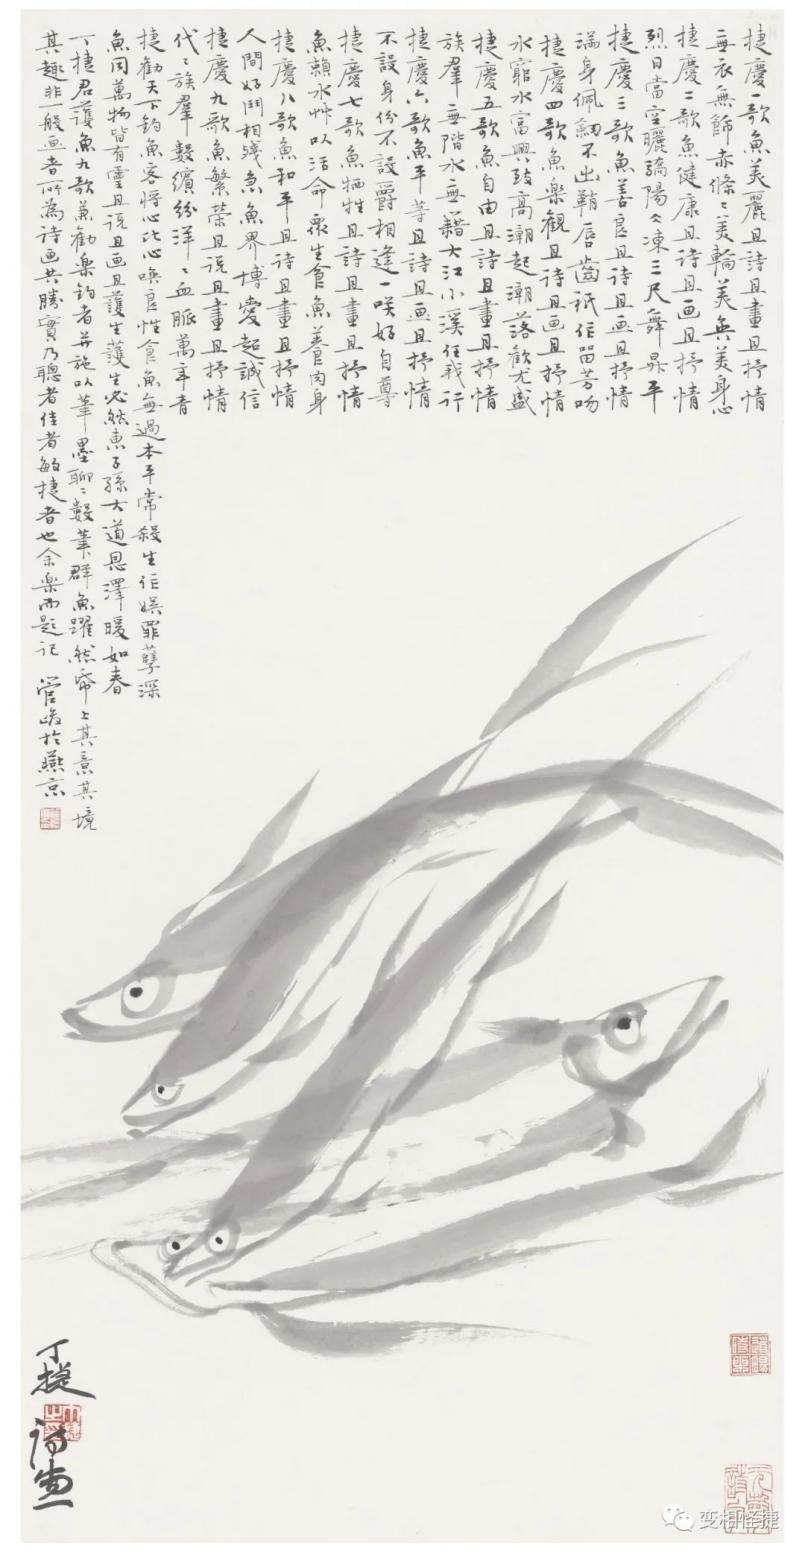 捷慶一歌魚美麗且詩且畫且抒情
無衣無飾赤條條美輪美奐美身心
捷慶二歌魚健康且诗且画且抒情
烈日當空曬驕陽天凍三尺舞昇平
捷慶三歌魚善良且诗且画且抒情
満身佩劍不出鞘唇齒祇作留芳吻
捷慶四歌魚樂観且诗且画且抒情
水窮水富興致高潮起潮落歡尤盛
捷慶五歌魚自由且詩且畫且抒情
族羣無階水無籍大江小溪任我行
捷慶六歌魚平等且詩且画且抒情
不設身份不設爵相逢一咲好自尊
捷慶七歌魚牺牲且詩且畫且抒情
魚賴水艸以活命衆生食魚養肉身
捷慶八歌魚和平且诗且畫且抒情
人間好鬥相殘急魚界博愛超誠信
捷慶九歌魚繁荣且说且畫且抒情
代代族羣數繽紛洋洋血脈萬年青
捷勸天下釣魚客将心比心喚良性食魚無過本平常殺生作娱罪孽深
魚同萬物皆有靈且说且画且護生護生必然惠子孫大道恩澤暖如春
丁捷君護魚九歌兼勸樂釣者并施以筆墨聊聊數筆群魚躍然紙上其意其境
其趣非一般画者所為诗画共勝實乃聰者佳者敏捷者也余樂而題记 管峻於燕京
丁捷
诗画
变相怪捷